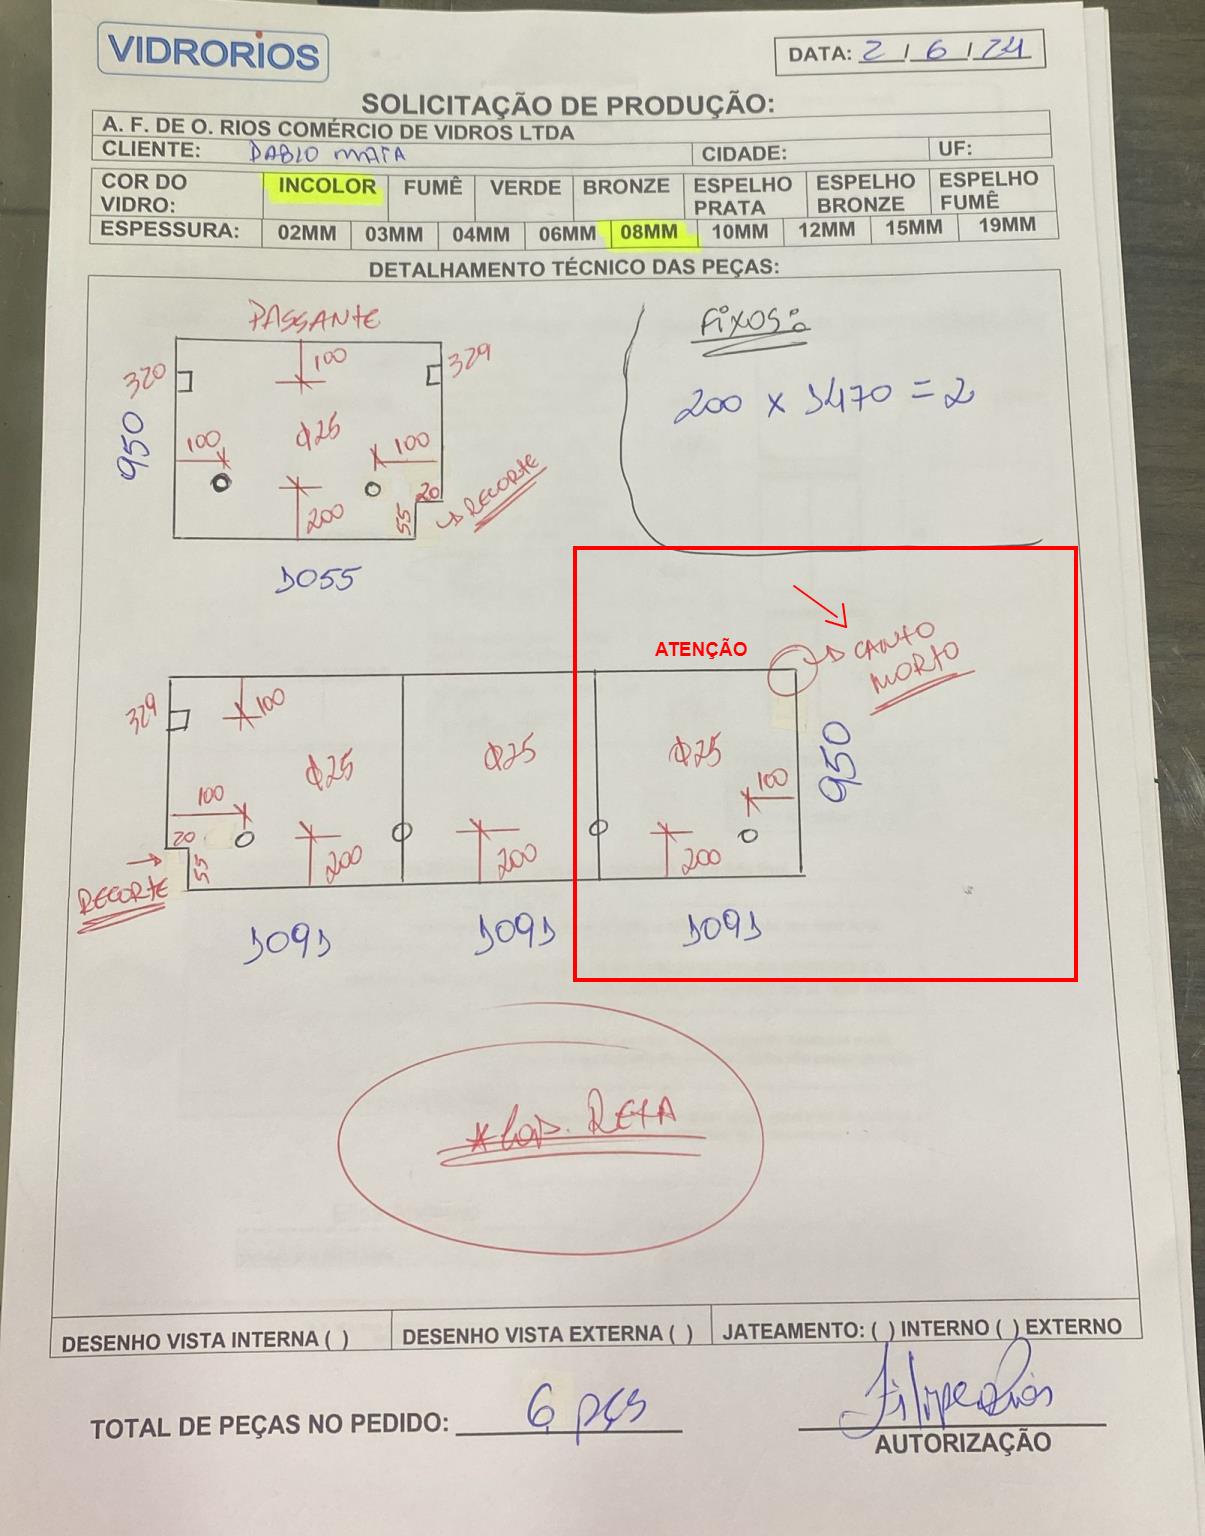 VIDRORIOS
DATA: 2 / 6 / 24
SOLICITAÇÃO DE PRODUÇÃO:
A. F. DE O. RIOS COMÉRCIO DE VIDROS LTDA
CLIENTE: PABLO MATA CIDADE: UF:
COR DO VIDRO: INCOLOR FUMÊ VERDE BRONZE ESPELHO PRATA ESPELHO BRONZE ESPELHO FUMÊ
ESPESSURA: 02MM 03MM 04MM 06MM 08MM 10MM 12MM 15MM 19MM
DETALHAMENTO TÉCNICO DAS PEÇAS:
PASSANTE
FIXOS:
320 100 329
200 x 1470 = 2
950
100 Φ25 100
200 55 20 RECORTE
1055
ATENÇÃO
CANTO
MORTO
329 100
Φ25 Φ25 Φ25
950
100 100
20 55 200 200 200
RECORTE
1091 1091 1091
*Lap. RETA
DESENHO VISTA INTERNA ( ) DESENHO VISTA EXTERNA ( ) JATEAMENTO: ( ) INTERNO ( ) EXTERNO
TOTAL DE PEÇAS NO PEDIDO: 6 pçs
Filipe Rios
AUTORIZAÇÃO